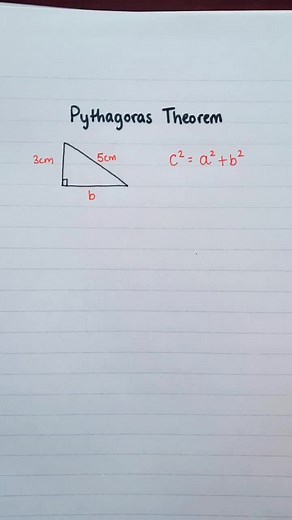 Pythagoras Theorem
3cm 5cm c² = a² + b²
b